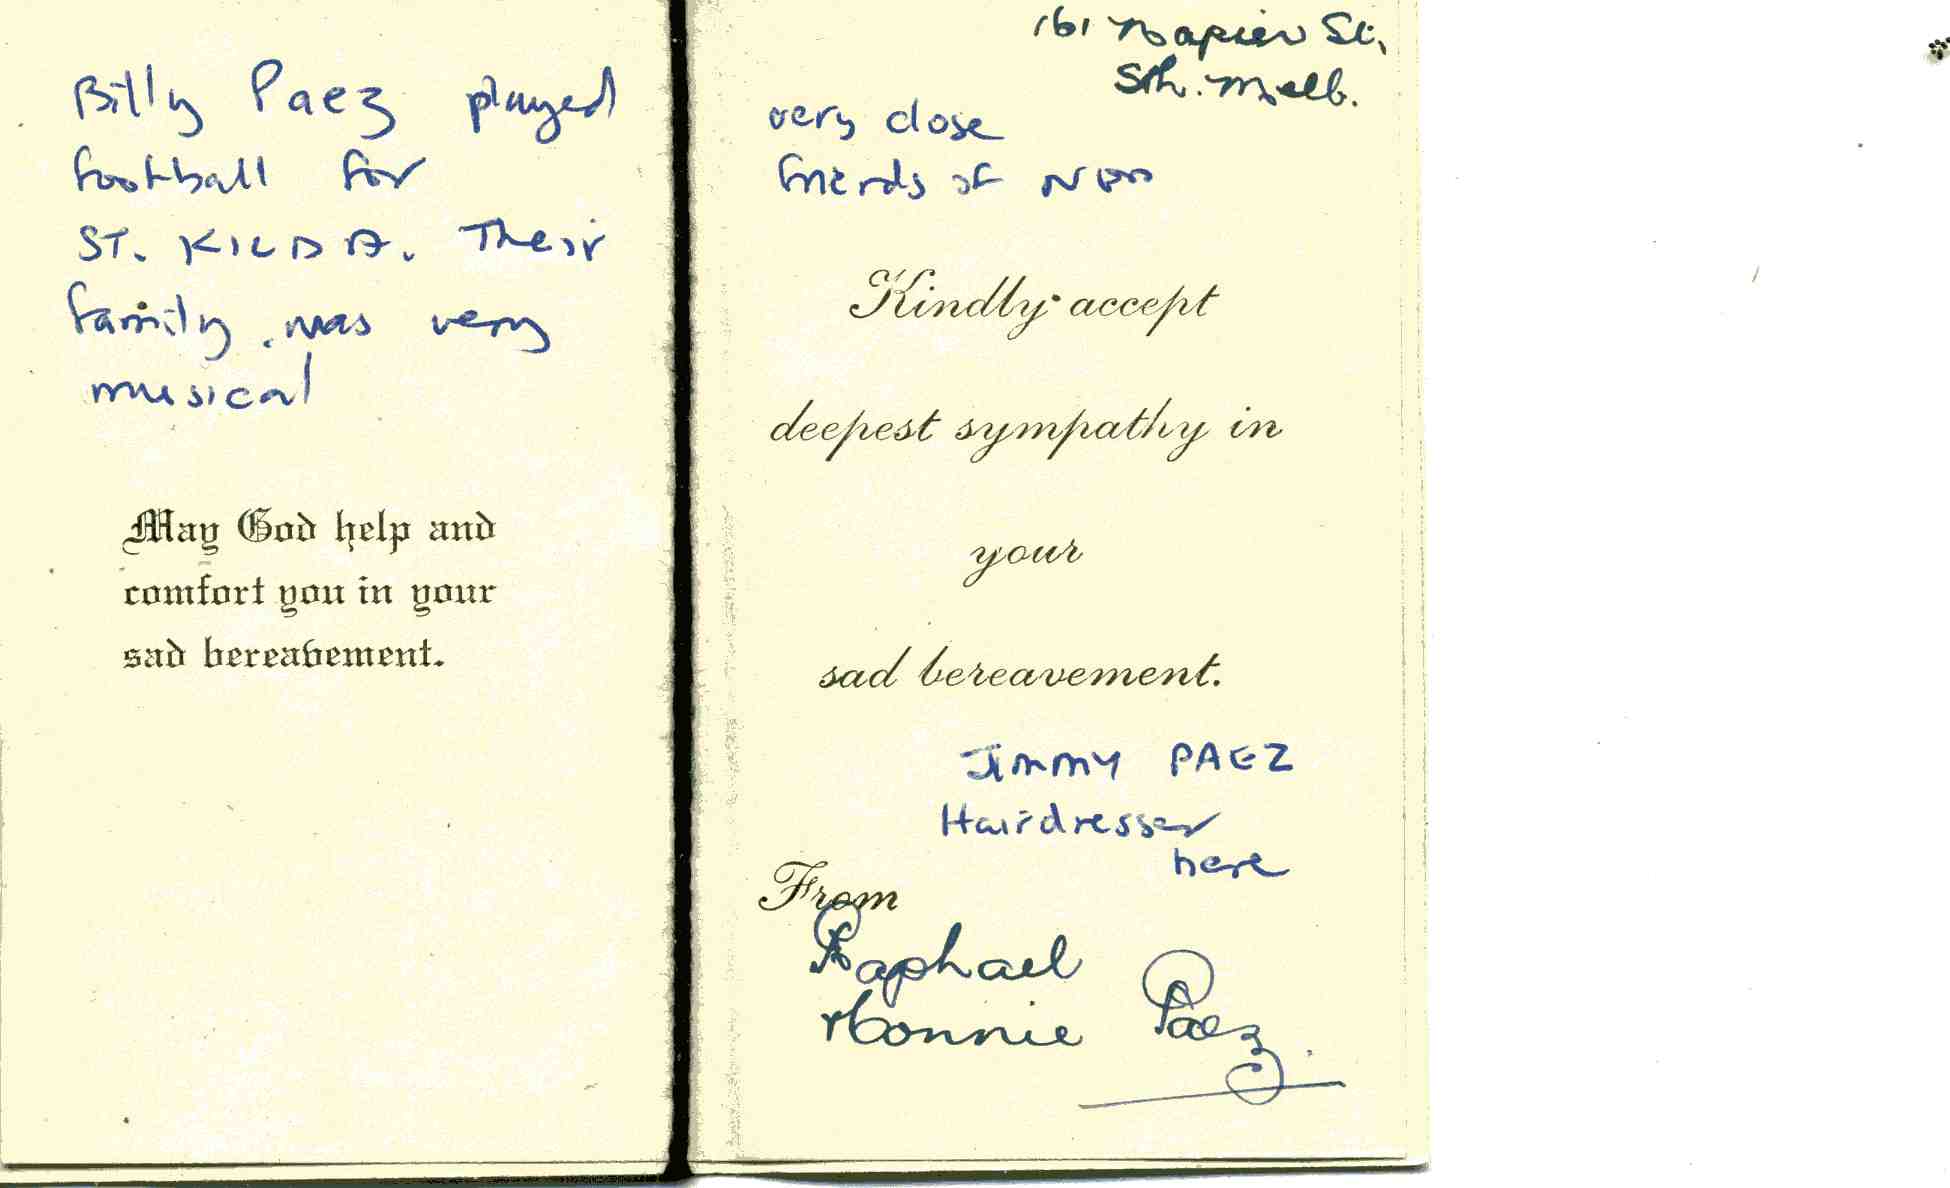 Billy Paez played
football for
ST. KILDA. Their
family was very
musical
May God help and
comfort you in your
sad bereavement.
161 Napier St,
Sth. Melb.
very close
friends of
Kindly accept
deepest sympathy in
your
sad bereavement.
JIMMY PAEZ
Hairdresser
here
From
Raphael
Connie Paez